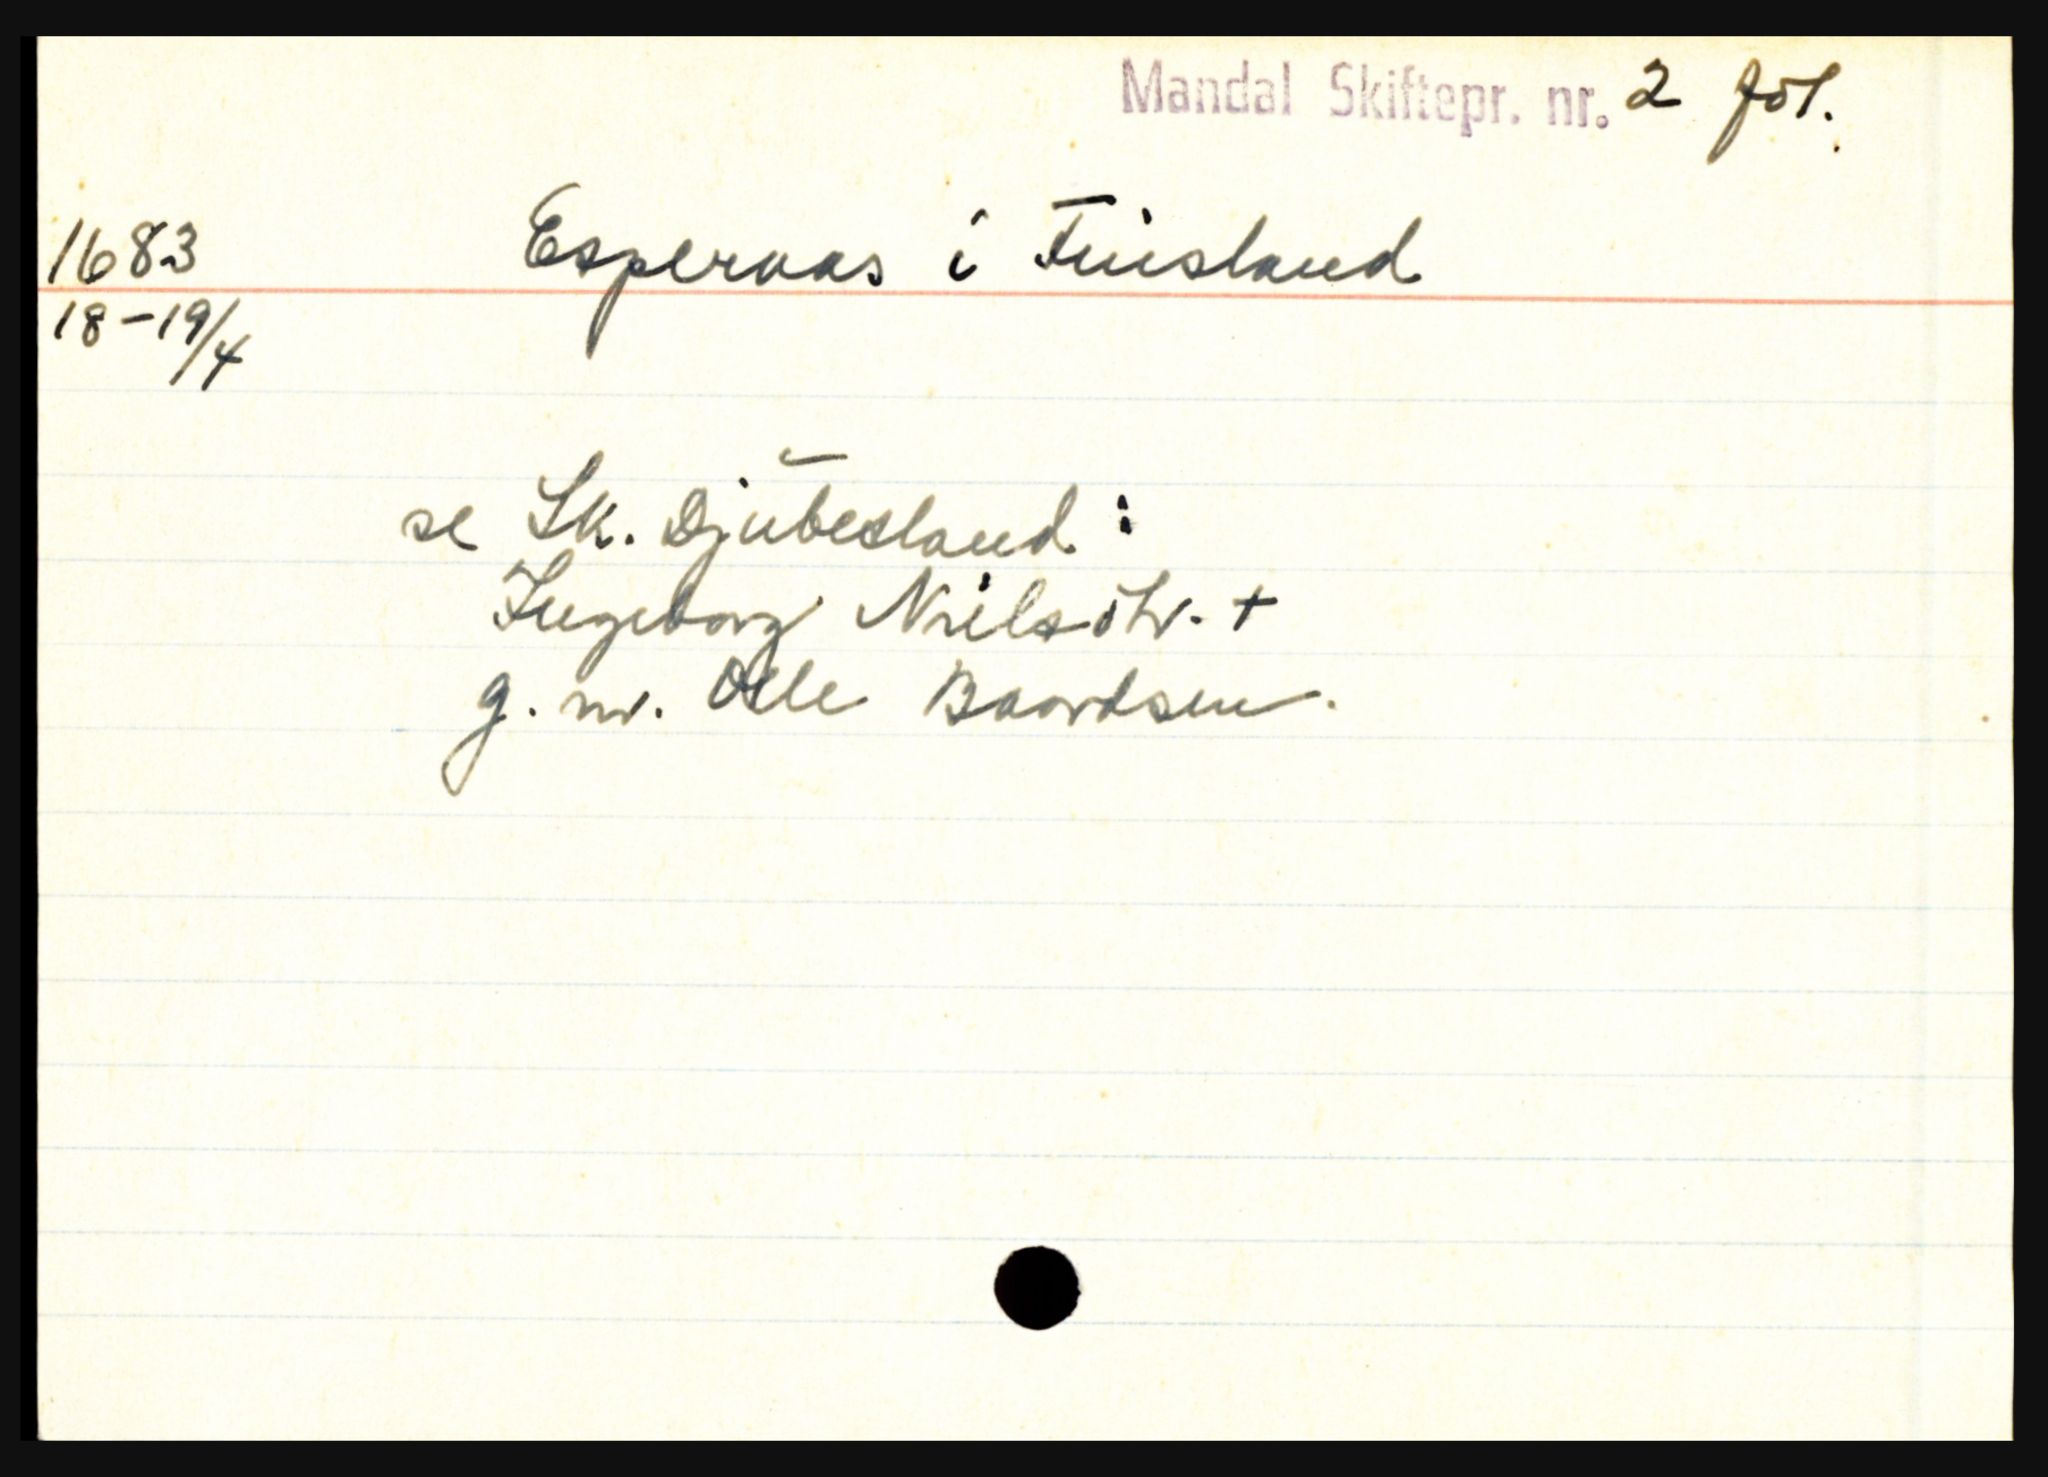 Mandal Skiftepr. nr. 2 fol.
1683 Esperaas i Finsland
18-19/4
se Sk. Djubesland:
Ingeborg Nielsdtr. +
g. m. Olle Baardsen.